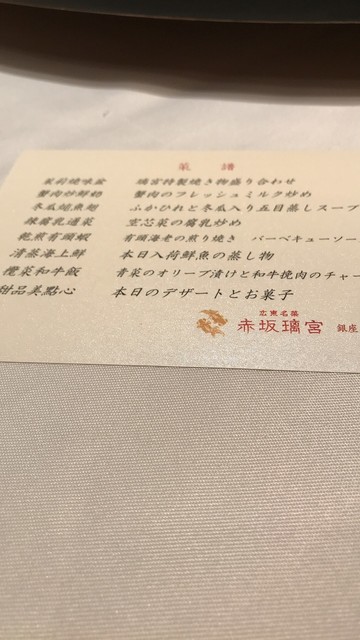 菜 譜
璃宮特製焼き物盛り合わせ
蟹肉炒鮮奶 蟹肉のフレッシュミルク炒め
冬瓜繪魚翅 ふかひれと冬瓜入り五目蒸しスープ
椒腐乳通菜 空芯菜の腐乳炒め
乾煎有頭蝦 有頭海老の煎り焼き バーベキューソー
清蒸海上鮮 本日入荷鮮魚の蒸し物
欖菜和牛飯 青菜のオリーブ漬けと和牛挽肉のチャー
甜品美點心 本日のデザートとお菓子
広東名菜
赤坂璃宮 銀座